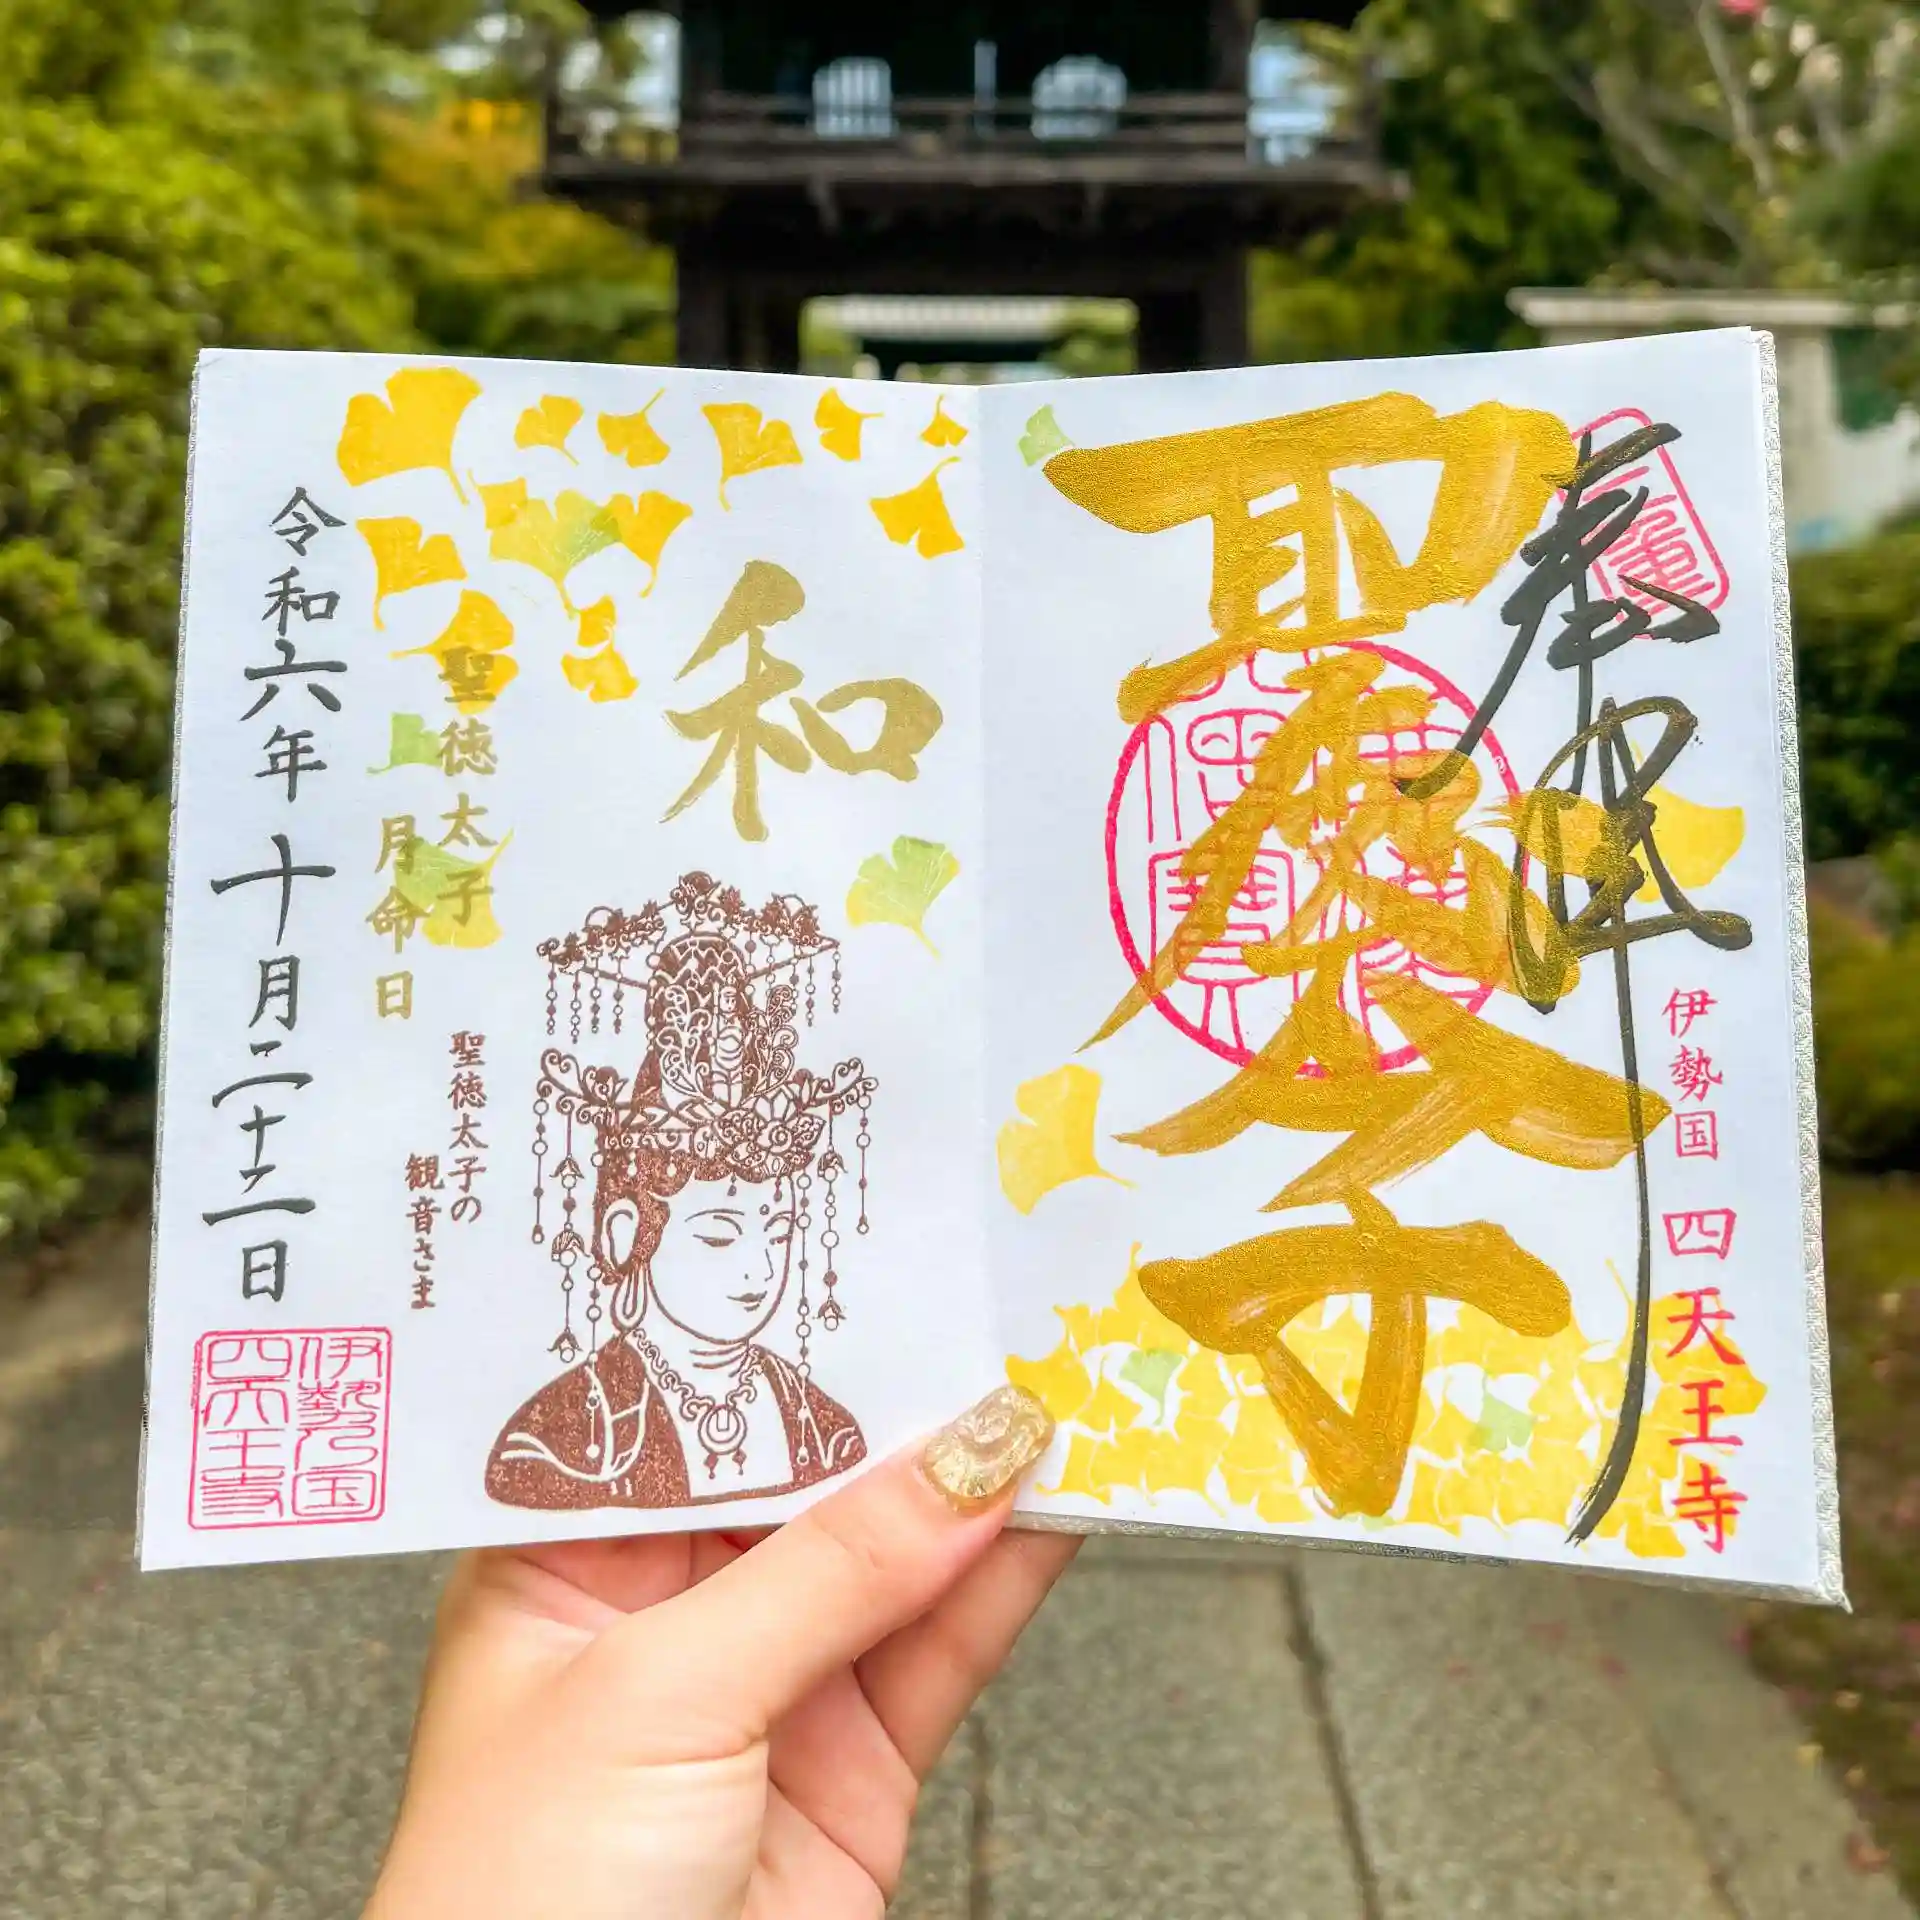 奉拝
聖徳太子
伊勢国 四天王寺
和
聖徳太子
月命日
聖徳太子の
観音さま
令和六年十月二十二日
伊勢乃国
四天王寺